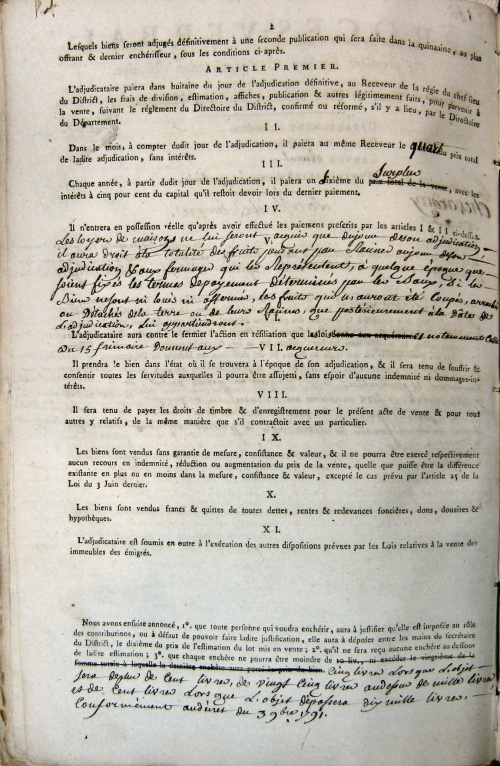 2
Lesquels biens seront adjugés définitivement à une seconde publication qui sera faite dans la quinzaine, au plus
offrant & dernier enchérisseur, sous les conditions ci-après.
ARTICLE PREMIER.
L'adjudicataire paiera dans huitaine du jour de l'adjudication définitive, au Receveur de la régie du chef lieu
du District, les frais de division, estimation, affiches, publication & autres légitimement faits, pour parvenir à
la vente, suivant le réglement du Directoire du District, confirmé ou réformé, s'il y a lieu, par le Directoire
du Département.
I I.
Dans le mois, à compter dudit jour de l'adjudication, il paiera au même Receveur le quart du prix total
de ladite adjudication, sans intérêts.
I I I.
Surplus
Chaque année, à partir dudit jour de l'adjudication, il paiera un sixième du prix total de la vente, avec les
intérêts à cinq pour cent du capital qu'il restoit devoir lors du dernier paiement.
I V.
Il n'entrera en possession réelle qu'après avoir effectué les paiemens prescrits par les articles I & II ci-dessus.
Les loyers de maisons ne lui seront acquis que du jour de son adjudication
V.
il aura droit à la totalité des fruits pendans par Racine au jour de son
adjudication & aux fermages qui les Représentent, à quelque époque que
soient fixés les termes de payement déterminés par les Baux, Si le
Bien ne sont ni loués ni affermés, les fruits qui n'auront été coupés, arrachés
ou Détachés de la terre ou de leurs Racines, que postérieurement à la Date de
L'adjudication, Lui appartiendront.
V I.
L'adjudicataire aura contre le fermier l'action en résiliation que les lois donne aux acquéreurs et notamment celle
du 15 frimaire Donnent aux acquereurs.
V I I.
Il prendra le bien dans l'état où il se trouvera à l'époque de son adjudication, & il sera tenu de souffrir &
consentir toutes les servitudes auxquelles il pourra être assujetti, sans espoir d'aucune indemnité ni dommages-in-
térêts.
V I I I.
Il sera tenu de payer les droits de timbre & d'enregistrement pour le présent acte de vente & pour tous
autres y relatifs, de la même manière que s'il contractoit avec un particulier.
I X.
Les biens sont vendus sans garantie de mesure, consistance & valeur, & il ne pourra être exercé respectivement
aucun recours en indemnité, réduction ou augmentation du prix de la vente, quelle que puisse être la différence
existante en plus ou en moins dans la mesure, consistance & valeur, excepté le cas prévu par l'article 25 de la
Loi du 3 Juin dernier.
X.
Les biens sont vendus francs & quittes de toutes dettes, rentes & redevances foncières, dons, douaires &
hypothêques.
X I.
L'adjudicataire est soumis en outre à l'exécution des autres dispositions prévues par les Lois relatives à la vente des
immeubles des émigrés.
Nous avons ensuite annoncé, 1°. que toute personne qui voudra enchérir, aura à justifier qu'elle est imposée au rôle
des contributions, ou à défaut de pouvoir faire ladite justification, elle aura à déposer entre les mains du secrétaire
du District, le dixième du prix de l'estimation du lot mis en vente ; 2°. qu'il ne sera reçu aucune enchère au dessous
de ladite estimation ; 3°. que chaque enchère ne pourra être moindre de 10 liv., ni excéder le vingtième de la
somme totale à laquelle la dernière enchère aura porté le prix du bien cinq livres Lors que L'objet
sera de plus de Cent livres, de vingt Cinq livres au dessus de mille livres
et de Cent livres Lors que L'objet dépassera dix mille livres,
Conformément au décret du 3 9bre 1791.